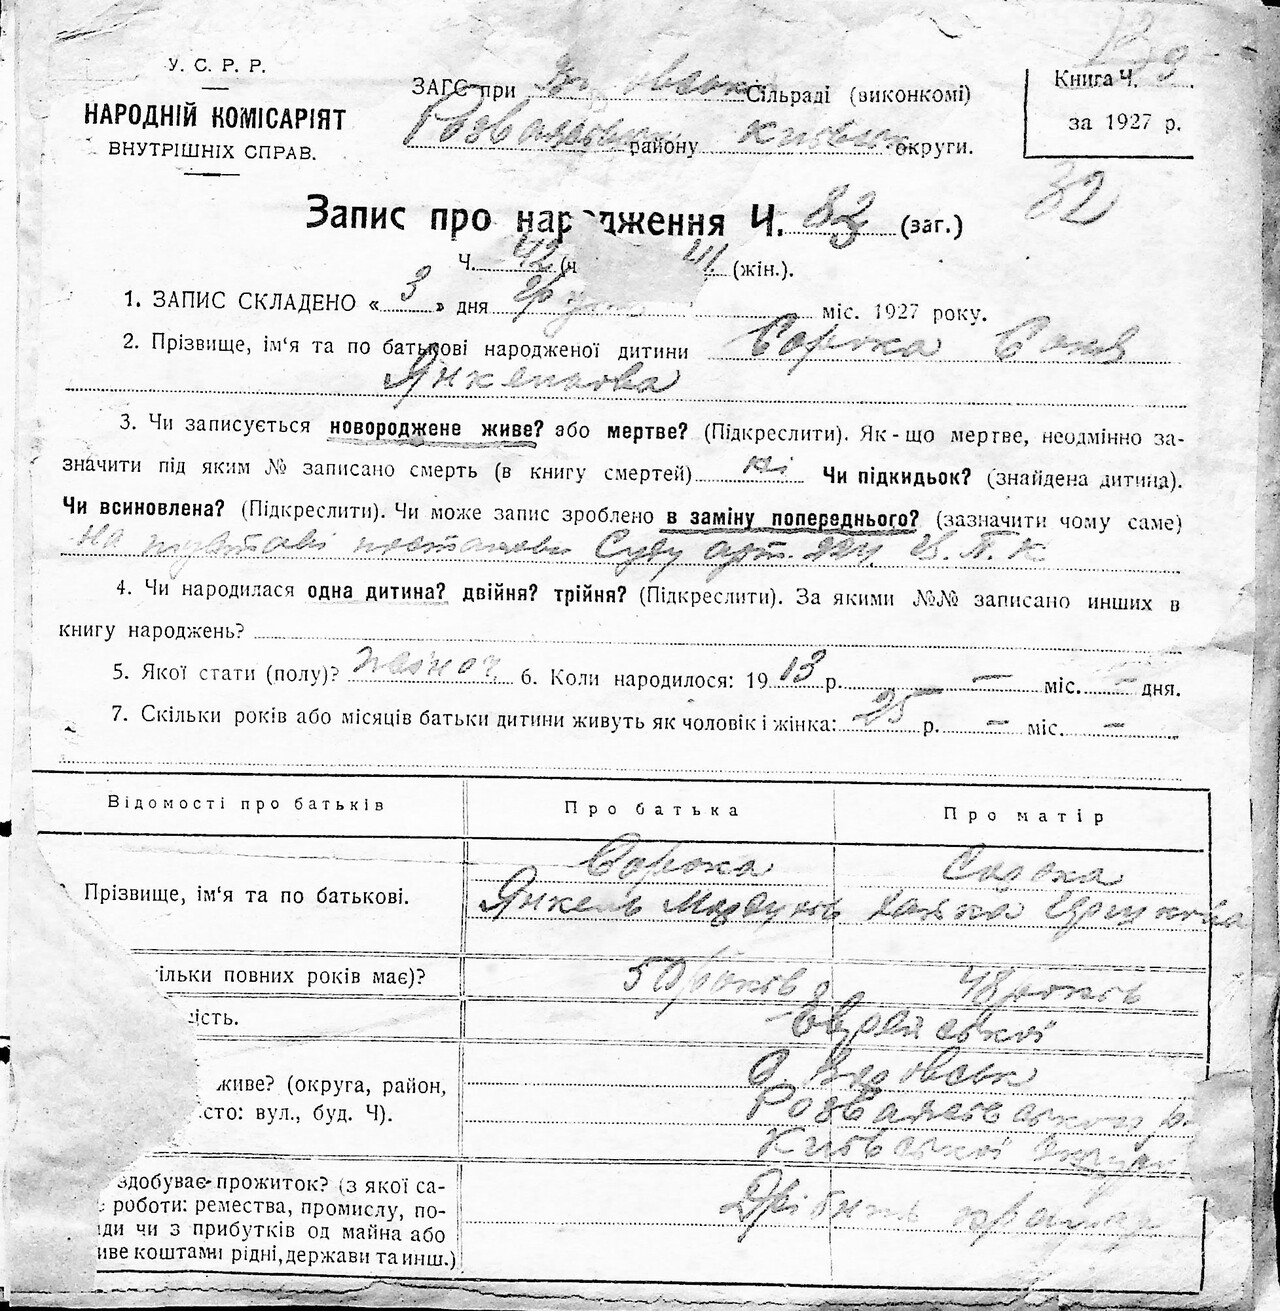 У. С. Р. Р.
НАРОДНІЙ КОМІСАРІЯТ
ВНУТРІШНІХ СПРАВ.
ЗАГС при Сільраді (виконкомі)
району округи.
Книга Ч. 9
за 1927 р.
32
Запис про народження Ч. 83 (заг.)
Ч. 42 41 (жін.).
1. ЗАПИС СКЛАДЕНО « 3 » дня міс. 1927 року.
2. Прізвище, ім'я та по батькові народженої дитини Сорока
Янкелівна
3. Чи записується новороджене живе? або мертве? (Підкреслити). Як-що мертве, неодмінно за-
значити під яким № записано смерть (в книгу смертей) ні Чи підкидьок? (знайдена дитина).
Чи всиновлена? (Підкреслити). Чи може запис зроблено в заміну попереднього? (зазначити чому саме)
на підставі постанови Суду арт. Ц. П. К
4. Чи народилася одна дитина? двійня? трійня? (Підкреслити). За якими №№ записано инших в
книгу народжень?
5. Якої стати (полу)? жіноч. 6. Коли народилося: 19 13 р. — міс. — дня.
7. Скільки років або місяців батьки дитини живуть як чоловік і жінка: 25 р. — міс. —
Відомості про батьків Про батька Про матір
Прізвище, ім'я та по батькові.
Сорока Сорока
Янкель
ільки повних років має)? 50 років 48 років
ість. Еврейської
живе? (округа, район,
сто: вул., буд. Ч).
Розважевського
Київської округи
здобуває прожиток? (з якої са-
роботи: ремества, промислу, по-
ди чи з прибутків од майна або
иве коштами рідні, держави та инш.)
Дрібний крамар